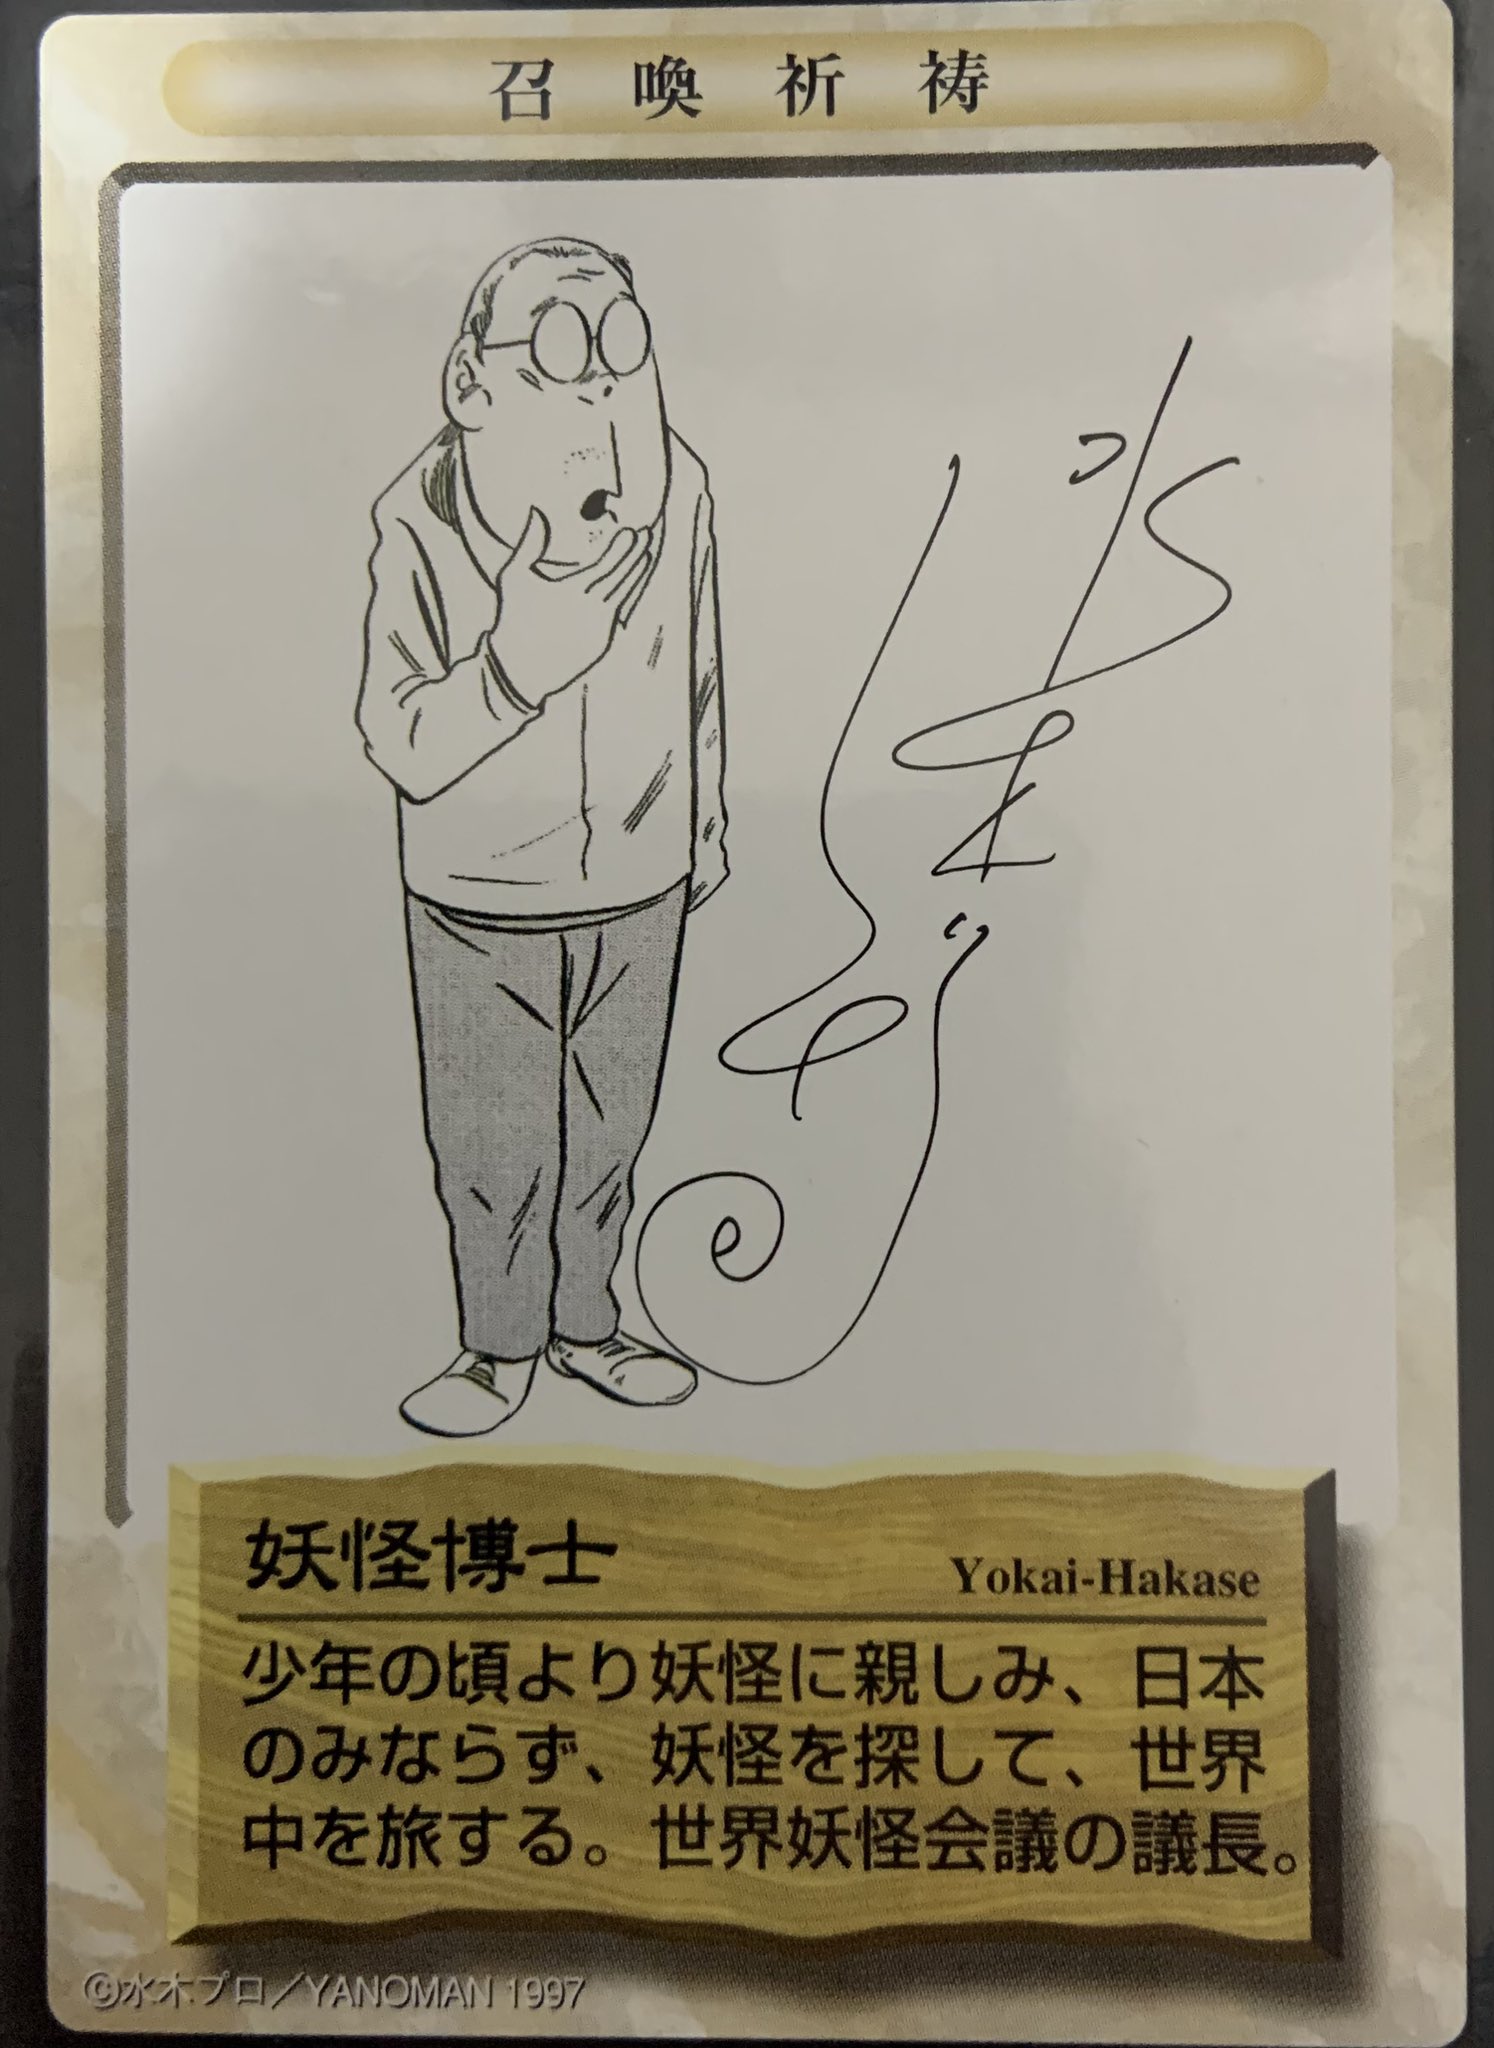 召喚祈祷
妖怪博士
Yokai-Hakase
少年の頃より妖怪に親しみ、日本
のみならず、妖怪を探して、世界
中を旅する。世界妖怪会議の議長。
©水木プロ／YANOMAN 1997